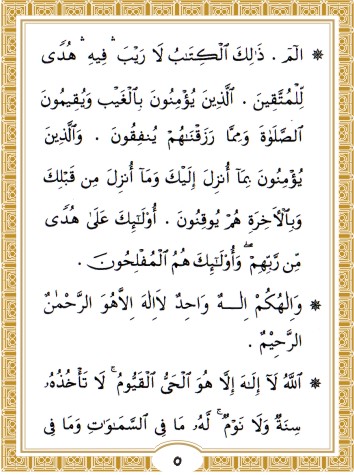 * الٓمٓ . ذَٰلِكَ ٱلْكِتَـٰبُ لَا رَيْبَ ۛ فِيهِ ۛ هُدًى
لِّلْمُتَّقِينَ . ٱلَّذِينَ يُؤْمِنُونَ بِٱلْغَيْبِ وَيُقِيمُونَ
ٱلصَّلَوٰةَ وَمِمَّا رَزَقْنَـٰهُمْ يُنفِقُونَ . وَٱلَّذِينَ
يُؤْمِنُونَ بِمَآ أُنزِلَ إِلَيْكَ وَمَآ أُنزِلَ مِن قَبْلِكَ
وَبِٱلْأَخِرَةِ هُمْ يُوقِنُونَ . أُو۟لَـٰٓئِكَ عَلَىٰ هُدًى
مِّن رَّبِّهِمْ ۖ وَأُو۟لَـٰٓئِكَ هُمُ ٱلْمُفْلِحُونَ .
* وَاِلٰهُكُمْ اِلٰـــهٌ وَاحِدٌ لَااِلٰهَ اِلَّاهُوَ الرَّحْمٰنُ
الرَّحِيْمُ .
* ٱللَّهُ لَآ إِلَـٰهَ إِلَّا هُوَ ٱلْحَىُّ ٱلْقَيُّومُ ۚ لَا تَأْخُذُهُۥ
سِنَةٌ وَلَا نَوْمٌ ۚ لَّهُۥ مَا فِى ٱلسَّمَـٰوَٰتِ وَمَا فِى
٥